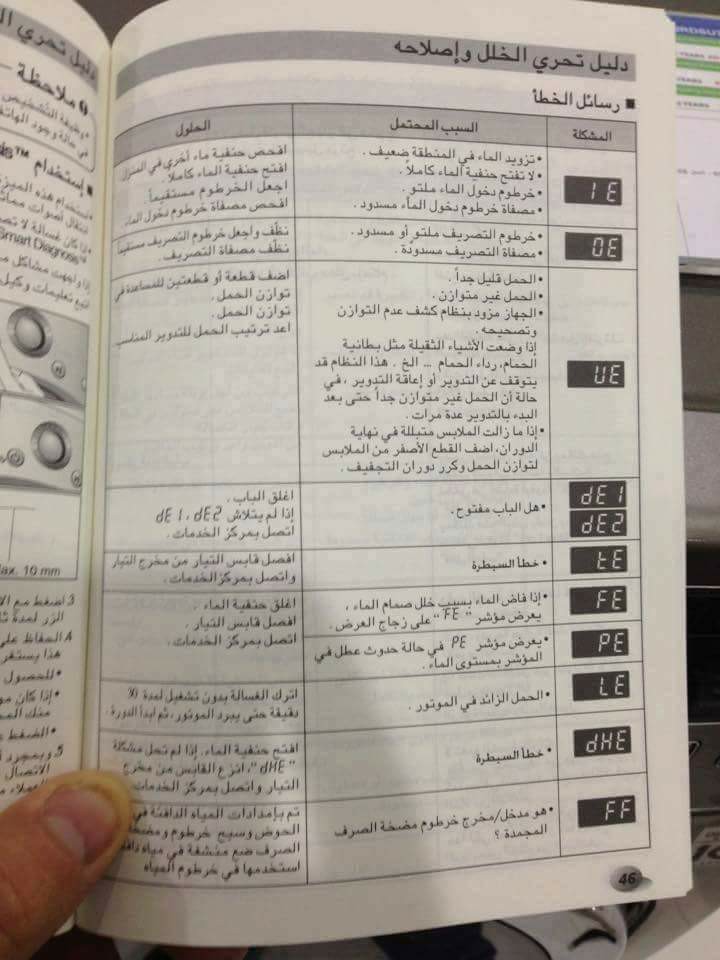 دليل تحري الخلل وإصلاحه
■ رسائل الخطأ
المشكلة
السبب المحتمل
الحلول
IE
• تزويد الماء في المنطقة ضعيف .
• لا تفتح حنفية الماء كاملاً .
• خرطوم دخول الماء ملتو .
• مصفاة خرطوم دخول الماء مسدود .
افحص حنفية ماء أخرى في المنزل
افتح حنفية الماء كاملاً .
اجعل الخرطوم مستقيماً .
افحص مصفاة خرطوم دخول الماء
OE
• خرطوم التصريف ملتو أو مسدود .
• مصفاة التصريف مسدودة .
نظّف واجعل خرطوم التصريف مستقيماً
نظّف مصفاة التصريف .
UE
• الحمل قليل جداً .
• الحمل غير متوازن .
• الجهاز مزود بنظام كشف عدم التوازن
وتصحيحه .
إذا وضعت الأشياء الثقيلة مثل بطانية
الحمام، رداء الحمام ... الخ . هذا النظام قد
يتوقف عن التدوير أو إعاقة التدوير ، في
حالة أن الحمل غير متوازن جداً حتى بعد
البدء بالتدوير عدة مرات .
• إذا ما زالت الملابس متبللة في نهاية
الدوران، اضف القطع الأصفر من الملابس
لتوازن الحمل وكرر دوران التجفيف .
اضف قطعة أو قطعتين للمساعدة في
توازن الحمل .
توازن الحمل .
اعد ترتيب الحمل للتدوير المناسب
dE1
dE2
• هل الباب مفتوح.
اغلق الباب .
إذا لم يتلاش dE1 ، dE2
اتصل بمركز الخدمات .
tE
• خطأ السيطرة
افصل قابس التيار من مخرج التيار
واتصل بمركز الخدمات .
FE
• إذا فاض الماء بسبب خلل صمام الماء ،
يعرض مؤشر " FE " على زجاج العرض.
اغلق حنفية الماء .
افصل قابس التيار .
اتصل بمركز الخدمات .
PE
• يعرض مؤشر PE في حالة حدوث عطل في
المؤشر بمستوى الماء .
LE
• الحمل الزائد في الموتور .
اترك الغسالة بدون تشغيل لمدة
دقيقة حتى يبرد الموتور ، ثم ابدأ الدورة .
dHE
• خطأ السيطرة
افتح حنفية الماء. إذا لم تحل مشكلة
" dHE "، انزع القابس من مخرج
التيار واتصل بمركز الخدمات
FF
• هو مدخل/مخرج خرطوم مضخة الصرف
المجمدة ؟
تم بإمدادات المياه الدافئة في
الحوض وسيح خرطوم
الصرف ضع منشفة في مياه
استخدمها في خرطوم المياه
46
دليل تحري الخلل
ملاحظة
• وظيفة التشخيص
في حالة وجود الهاتف
■ إستخدام
Smart Diagnosis™
max. 10 mm